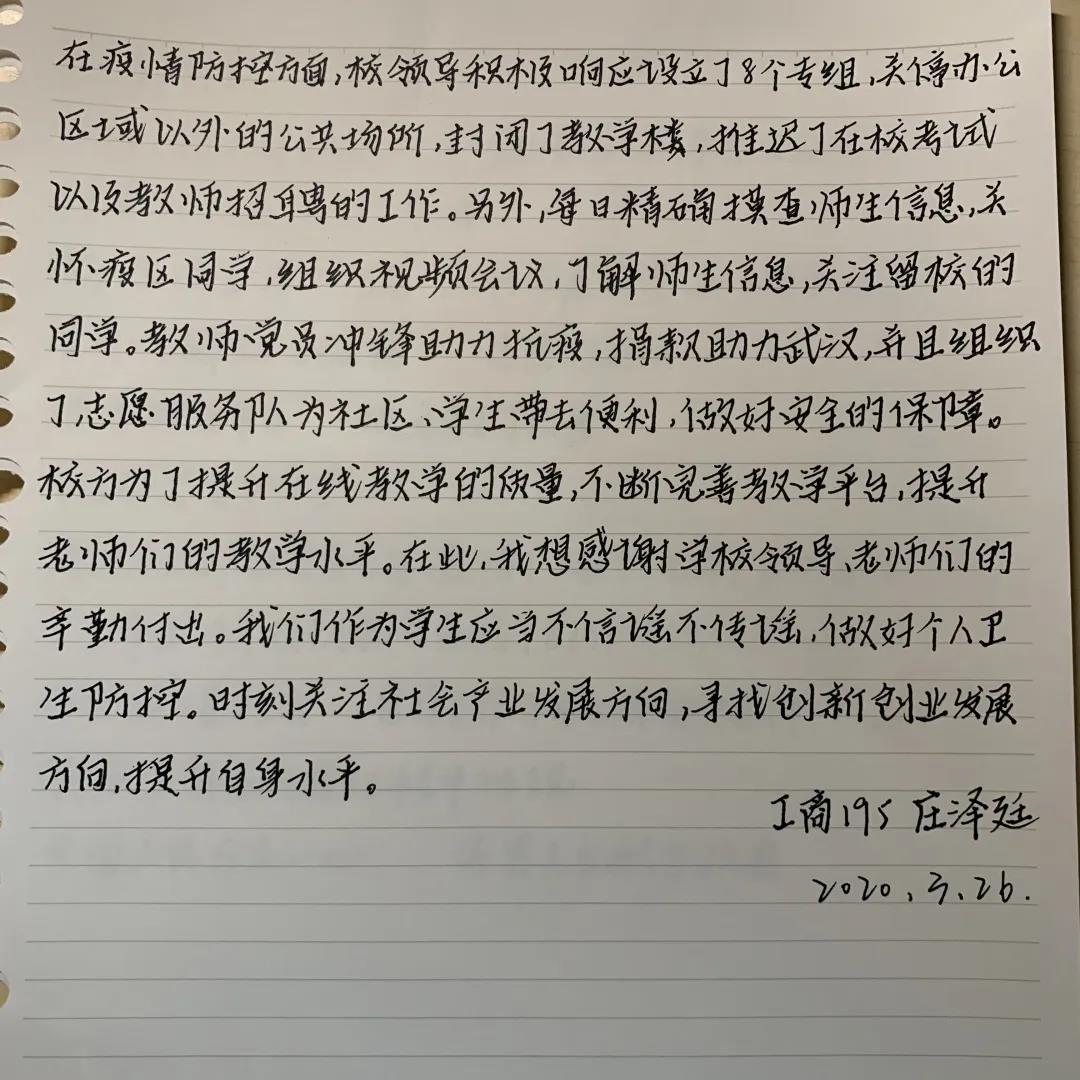 在疫情防控方面,校领导积极响应设立了8个专组,关停办公
区域以外的公共场所,封闭了教学楼,推迟了在校考试
以及教师招聘的工作。另外,每日精确摸查师生信息,关
怀疫区同学,组织视频会议,了解师生信息,关注留校的
同学。教师党员冲锋助力抗疫,捐款助力武汉,并且组织
了志愿服务队为社区、学生带去便利,做好安全的保障。
校方为了提升在线教学的质量,不断完善教学平台,提升
老师们的教学水平。在此,我想感谢学校领导、老师们的
辛勤付出。我们作为学生应当不信谣不传谣,做好个人卫
生防控。时刻关注社会产业发展方向,寻找创新创业发展
方向,提升自身水平。
工商195 庄泽廷
2020.3.26.